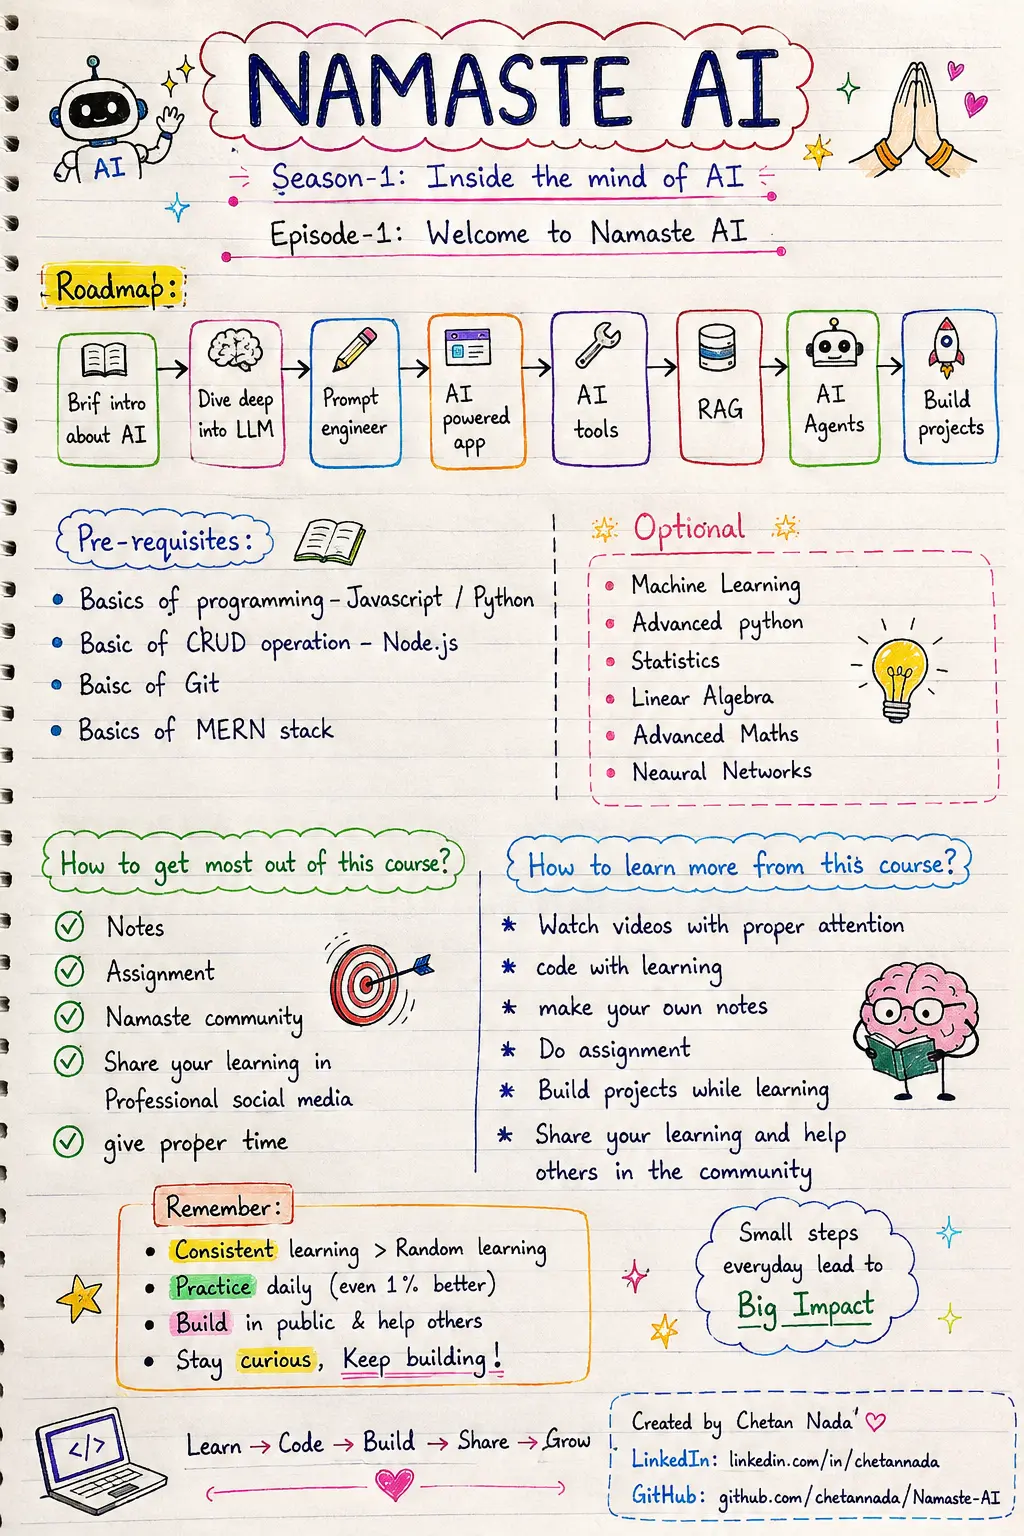 NAMASTE AI
AI
Season-1: Inside the mind of AI
Episode-1: Welcome to Namaste AI
Roadmap:
Brif intro
about AI
Dive deep
into LLM
Prompt
engineer
AI
powered
app
AI
tools
RAG
AI
Agents
Build
projects
Pre-requisites:
Basics of programming - Javascript / Python
Basic of CRUD operation - Node.js
Baisc of Git
Basics of MERN stack
Optional
Machine Learning
Advanced python
Statistics
Linear Algebra
Advanced Maths
Neaural Networks
How to get most out of this course?
Notes
Assignment
Namaste community
Share your learning in
Professional social media
give proper time
How to learn more from this course?
Watch videos with proper attention
code with learning
make your own notes
Do assignment
Build projects while learning
Share your learning and help
others in the community
Remember:
Consistent learning > Random learning
Practice daily (even 1% better)
Build in public & help others
Stay curious, Keep building!
Small steps
everyday lead to
Big Impact
</>
Learn → Code → Build → Share → Grow
Created by Chetan Nada'
LinkedIn: linkedin.com/in/chetannada
GitHub: github.com/chetannada/Namaste-AI